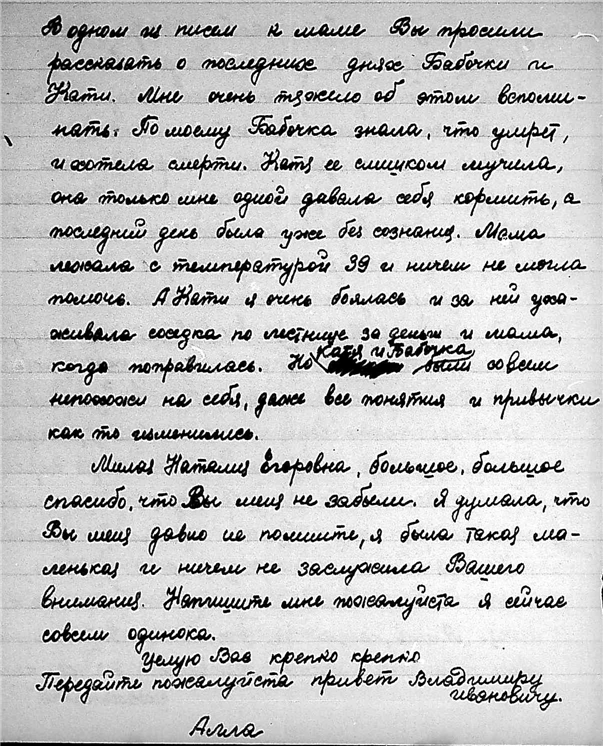 В одном из писем к маме Вы просили
рассказать о последних днях Бабочки и
Кати. Мне очень тяжело об этом вспоми-
нать. По моему Бабочка знала, что умрет,
и хотела смерти. Катя ее слишком мучила,
она только мне одной давала себя кормить, а
последний день была уже без сознания. Мама
лежала с температурой 39 и ничем не могла
помочь. А Кати я очень боялась и за ней уха-
живала соседка по лестнице за деньги и мама,
когда поправилась. Но Катя и Бабочка были совсем
непохожи на себя, даже все понятия и привычки
как то изменились.
Милая Наталия Егоровна, большое, большое
спасибо, что Вы меня не забыли. Я думала, что
Вы меня давно не помните, я была такая ма-
ленькая и ничем не заслужила Вашего
внимания. Напишите мне пожалуйста я сейчас
совсем одинока.
Целую Вас крепко крепко
Передайте пожалуйста привет Владимиру
Ивановичу.
Алла